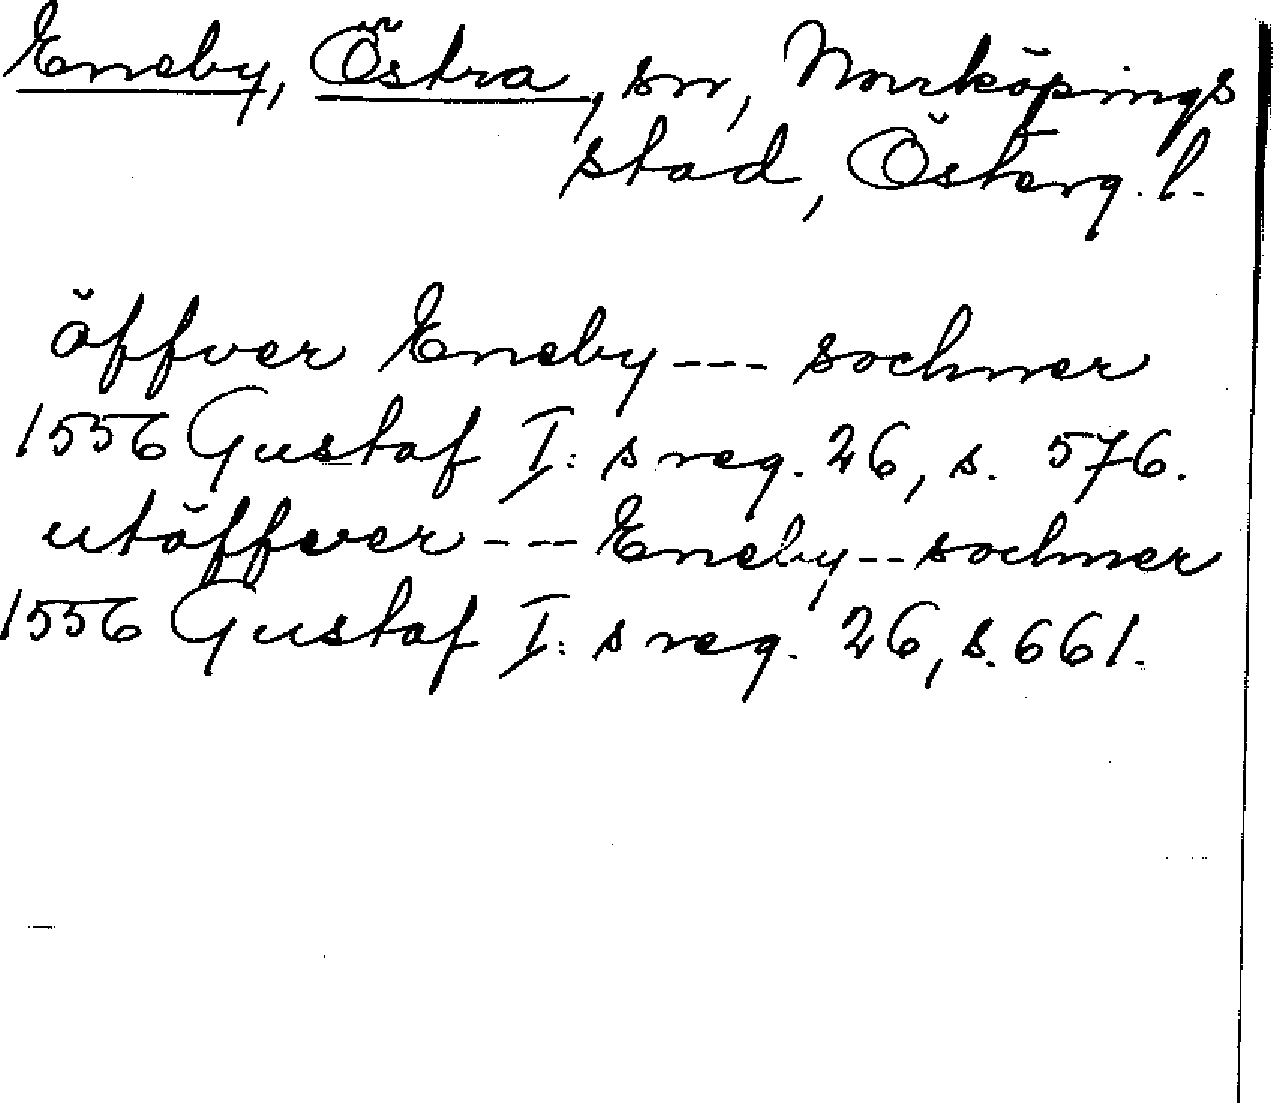 Eneby, Östra, sn, Norrköpings
stad, Österg. l.
öffver Eneby --- sochner
1556 Gustaf I: s reg. 26, s. 576.
utöffver --- Eneby -- sochner
1556 Gustaf I: s reg. 26, s. 661.